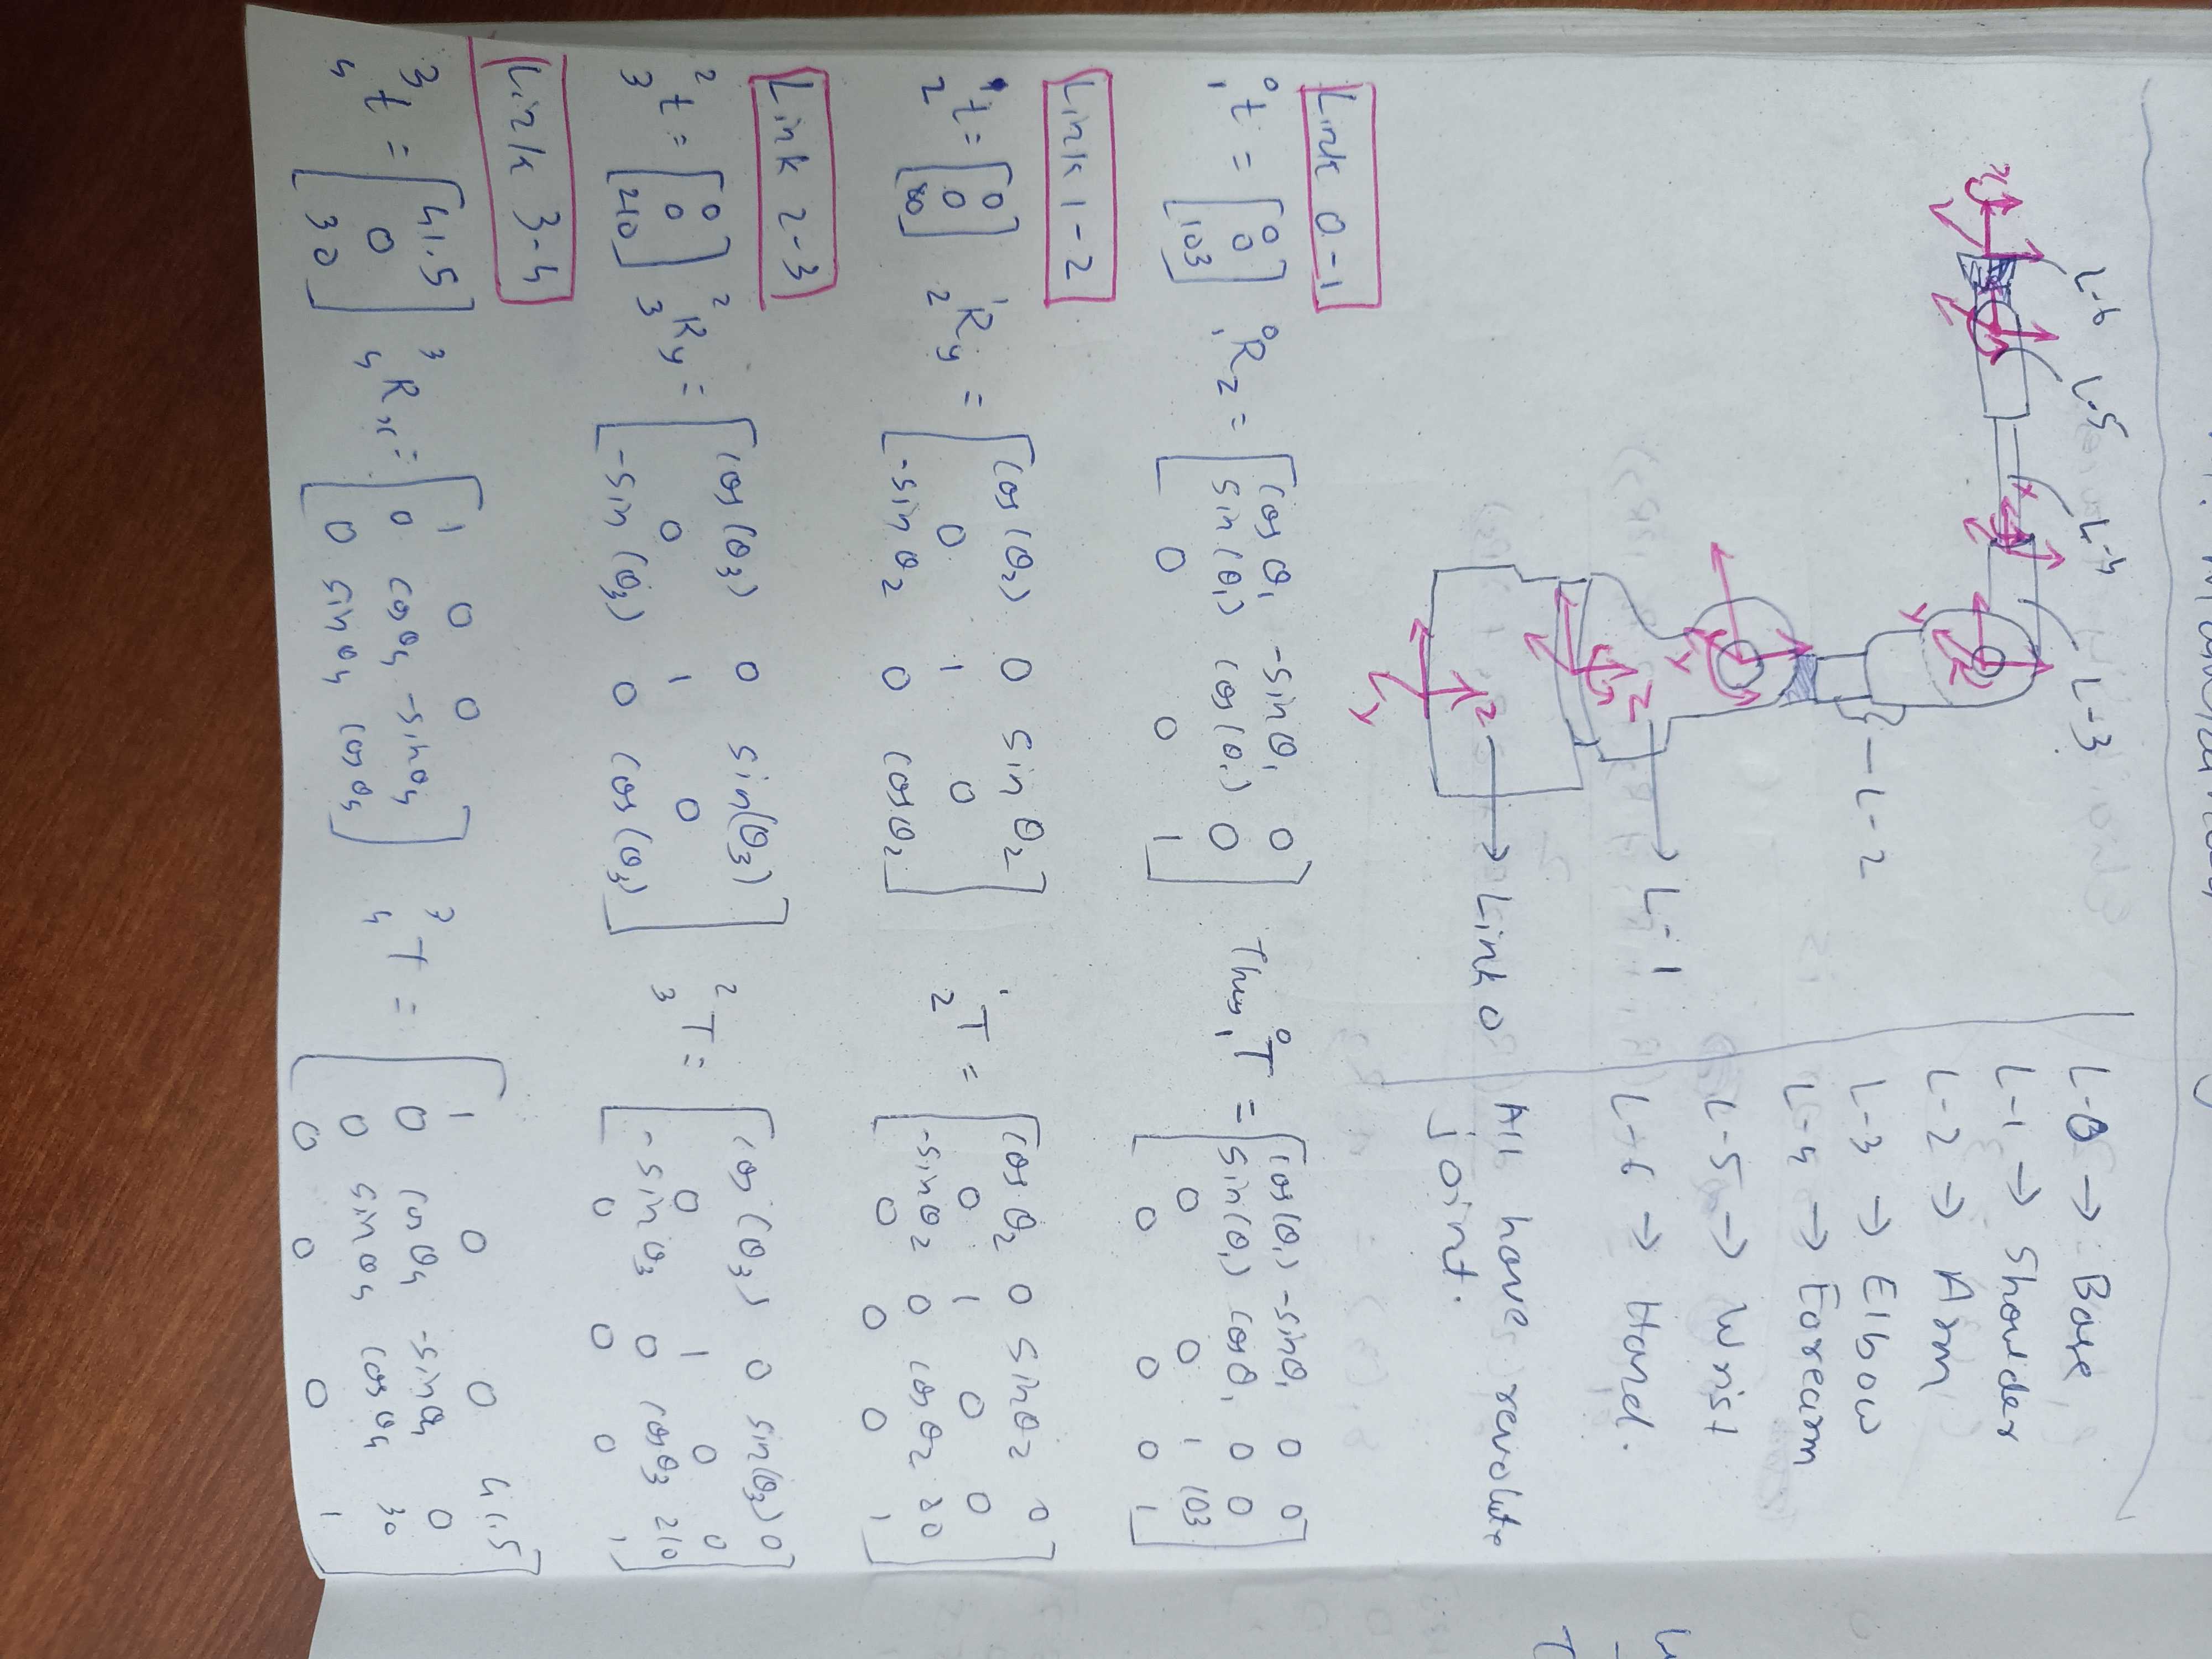 L-0 → Base
L-1 → Shoulder
L-2 → Arm
L-3 → Elbow
L-4 → Forearm
L-5 → Wrist
L-6 → Hand.
All have revolute
joint.
L-6
L-5
L-4
L-3
L-2
L-1
Link 0
x
y
z
Link 0-1
⁰₁t = [0; 0; 103] ⁰₁Rz = [cos θ₁ -sin θ₁ 0; sin(θ₁) cos(θ₁) 0; 0 0 1] Thus, ⁰₁T = [cos(θ₁) -sinθ₁ 0 0; sin(θ₁) cosθ₁ 0 0; 0 0 1 103; 0 0 0 1]
Link 1-2
¹₂t = [0; 0; 80] ¹₂Ry = [cos(θ₂) 0 sin θ₂; 0 1 0; -sin θ₂ 0 cosθ₂] ¹₂T = [cosθ₂ 0 sinθ₂ 0; 0 1 0 0; -sinθ₂ 0 cosθ₂ 20; 0 0 0 1]
Link 2-3
²₃t = [0; 0; 210] ²₃Ry = [cos(θ₃) 0 sin(θ₃); 0 1 0; -sin(θ₃) 0 cos(θ₃)] ²₃T = [cos(θ₃) 0 sin(θ₃) 0; 0 1 0 0; -sinθ₃ 0 cosθ₃ 210; 0 0 0 1]
Link 3-4
³₄t = [41.5; 0; 30] ³₄Rx = [1 0 0; 0 cosθ₄ -sinθ₄; 0 sinθ₄ cosθ₄] ³₄T = [1 0 0 41.5; 0 cosθ₄ -sinθ₄ 0; 0 sinθ₄ cosθ₄ 30; 0 0 0 1]